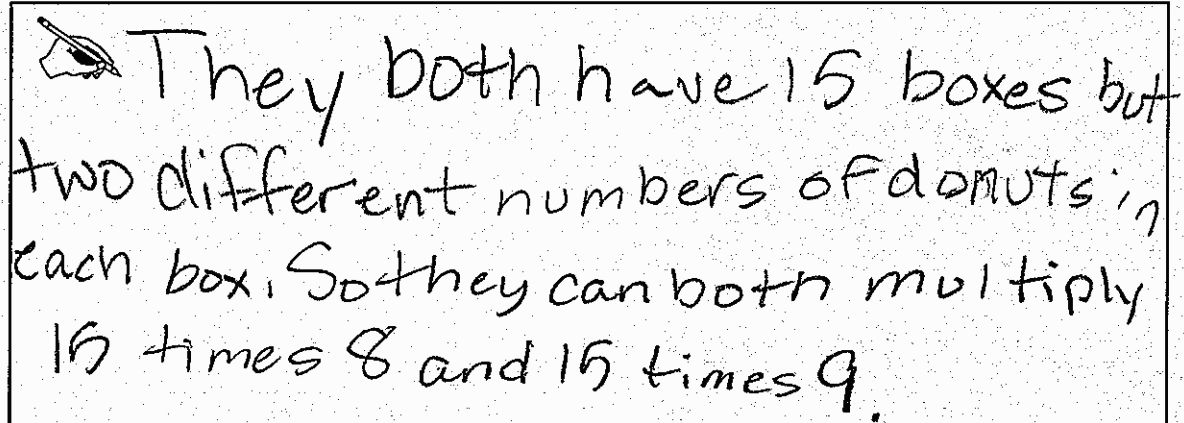 They both have 15 boxes but
two different numbers of donuts in
each box. So they can both multiply
15 times 8 and 15 times 9.